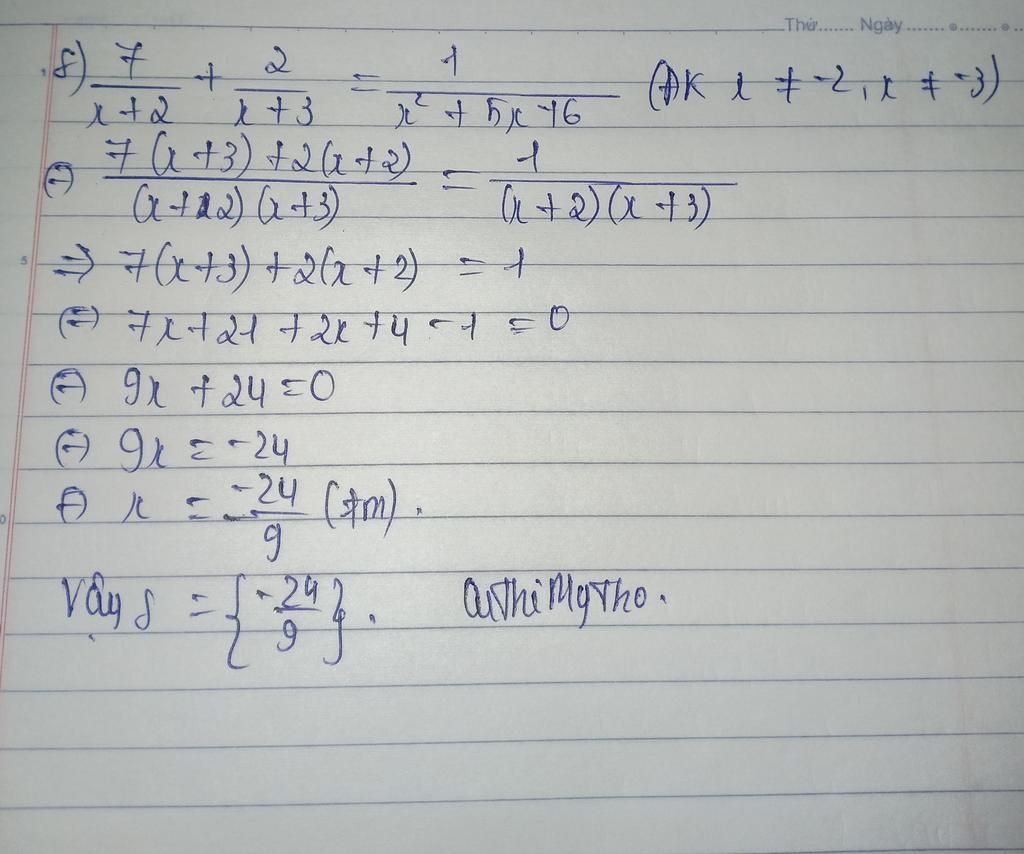 Thứ....... Ngày ....... ..
8) 7/(x+2) + 2/(x+3) = 1/(x² + 5x + 6) (ĐK x ≠ -2, x ≠ -3)
⇔ (7(x+3) + 2(x+2))/((x+2)(x+3)) = 1/((x+2)(x+3))
⇒ 7(x+3) + 2(x+2) = 1
⇔ 7x + 21 + 2x + 4 - 1 = 0
⇔ 9x + 24 = 0
⇔ 9x = -24
⇔ x = -24/9 (tm).
Vậy S = {-24/9}. CuThiMyTho.
5